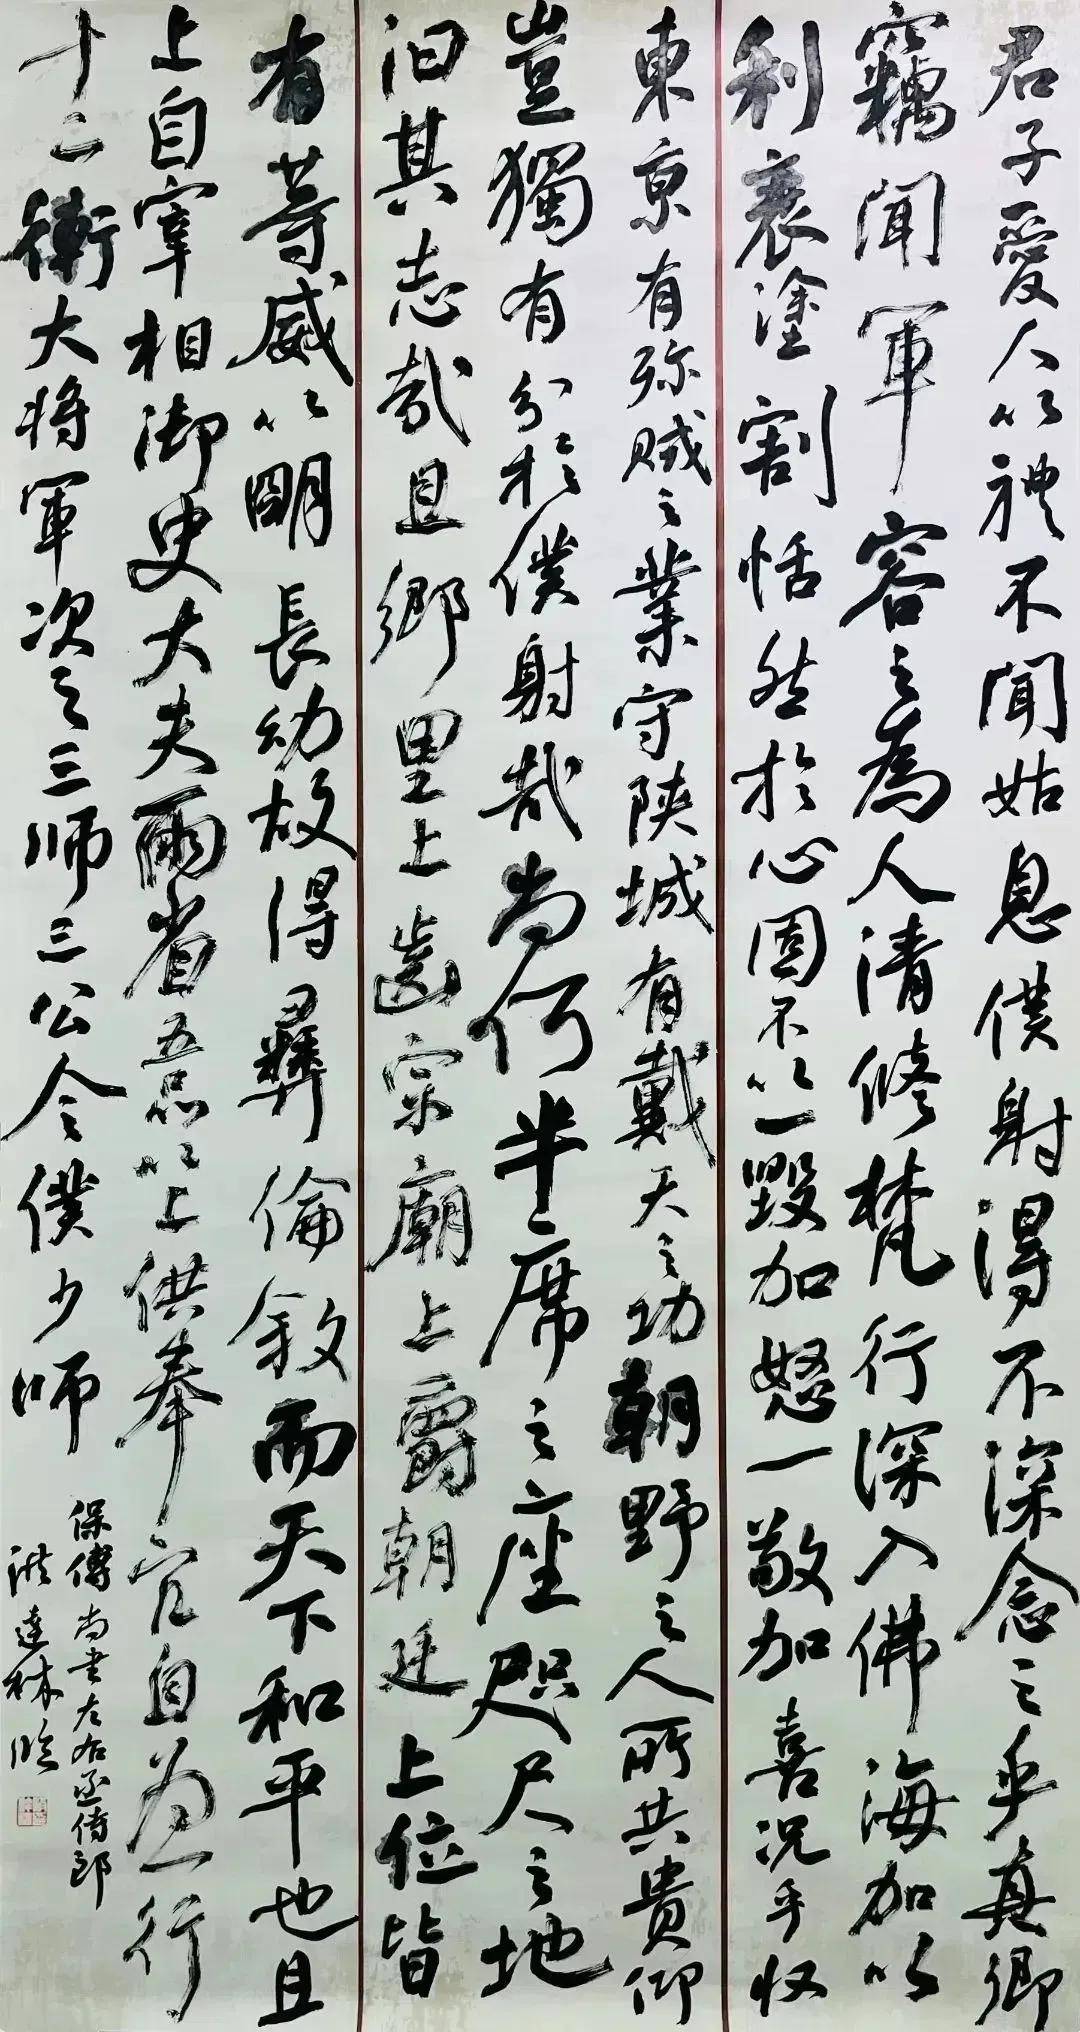 君子愛人以禮不聞姑息僕射得不深念之乎真卿
竊聞軍容之為人清修梵行深入佛海加以
利衰塗割恬然於心固不以一毀加怒一敬加喜況乎收
東京有殄賊之業守陝城有戴天之功朝野之人所共貴仰
豈獨有分於僕射哉尚何半席之座咫尺之地
汩其志哉且鄉里上齒宗廟上爵朝廷上位皆
有等威以明長幼故得彝倫敘而天下和平也且
上自宰相御史大夫兩省五品以上供奉官自為一行
十二衛大將軍次之三師三公令僕少師
保傅尚書左右丞侍郎
洪達林臨